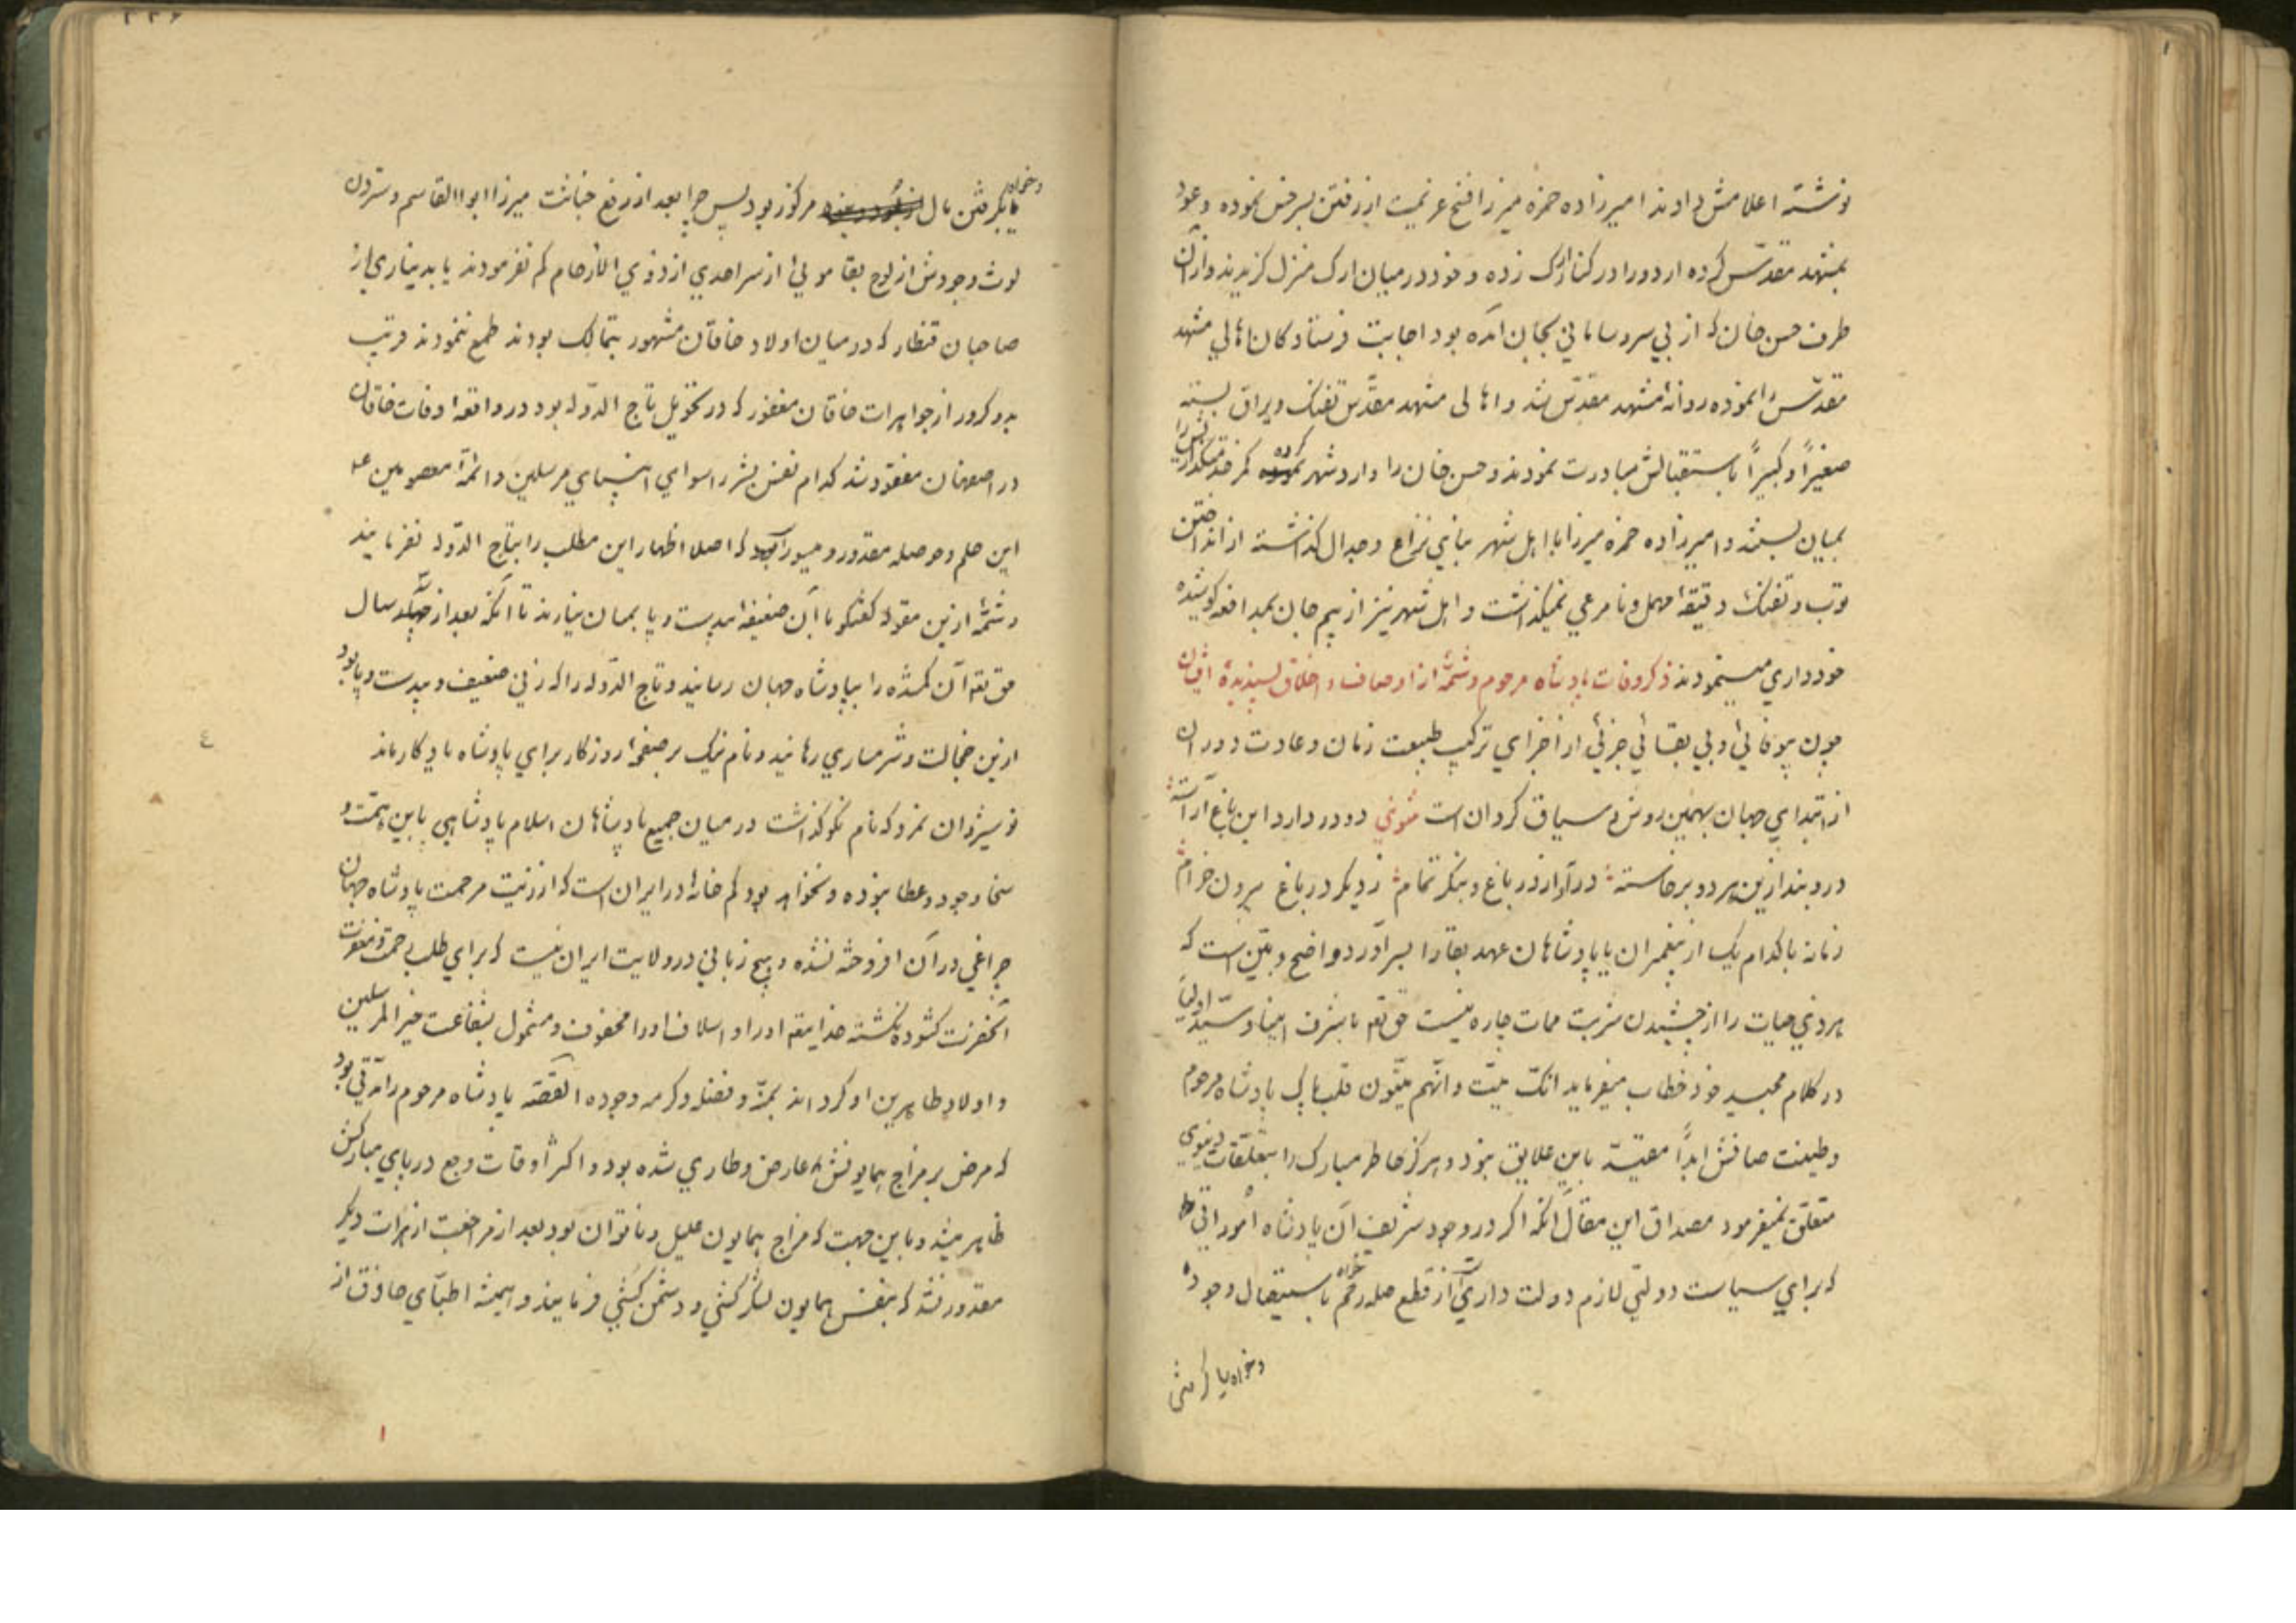 نوشته اعلامش دادند امیرزاده حمزه میرزا فسخ عزیمت از رفتن سرخس نموده و عود
بمشهد مقدّس کرده اردو را در کنار ارک زده و خود در میان ارک منزل گزیدند و از آن
طرف حسن خان که از بی سر و سامانی بجان آمده بود اجابت فرستادگان اهالی مشهد
مقدّس را نموده روانهٔ مشهد مقدّس شد و اهالی مشهد مقدّس تفنک و یراق بسته
صغیراً و کبیراً باستقبالش مبادرت نمودند و حسن خان را وارد شهر کرده کمر خدمتگذاریش را
بمیان بستند و امیرزاده حمزه میرزا با اهل شهر بنای نزاع و جدال گذاشته از انداختن
توپ و تفنک دقیقهٔ مهمل و نامرعی نمیگذاشت و اهل شهر نیز از بیم جان بمدافعه کوشیده
خودداری مینمودند ذکر وفات پادشاه مرحوم و شمّهٔ از اوصاف و اخلاق پسندیدهٔ ایشان
چون بیوفائی و بی بقائی جزئی از اجزای ترکیب طبیعت زمان و عادت دوران
از ابتدای جهان بهمین روش و سیاق گردان است مثنوی دو در دارد این باغ آراسته
در و بند ازین هر دو برخاسته درآ از در باغ و بنگر تمام ز دیگر در باغ بیرون خرام
زمانه با کدام یک از پیغمبران یا پادشاهان عهد بقا را بسر آورد و واضح و مبیّن است که
هر ذی حیات را از چشیدن شربت ممات چاره نیست حق تعم با شرف انبیا و سیّد اولیا
در کلام مجید خود خطاب میفرماید انّک میّت و انّهم میّتون قلب پاک پادشاه مرحوم
و طینت صافش ابداً مقیّد باین علایق نبود و هرگز خاطر مبارک را بتعلّقات دنیوی
متعلّق نمیفرمود مصداق این مقال آنکه اگر در وجود شریف آن پادشاه امور اتی
که برای سیاست دولتی لازم دولت داری است از قطع صله رحم خواه باستیصال وجود
و خواه یا گرفتن
و خواه بگرفتن مال مرکوز بود پس چرا بعد از رفع خباثت میرزا ابوالقاسم و ستردن
لوث وجودش از لوح بقا موئی از سر احدی از ذوی الارحام کم نفرمودند یا بدیناری از
صاحبان قنطار که در میان اولاد خاقان مشهور بتمالک بودند طمع ننمودند قریب
بدو کرور از جواهرات خاقان مغفور که در تحویل تاج الدّوله بود در واقعهٔ وفات خاقان
در اصفهان مفقود شد کدام نفس بشر را سوای انبیای مرسلین و ائمّهٔ معصومین عه
این حلم و حوصله مقدور و میسور است که اصلا اظهار این مطلب را بتاج الدّوله نفرمایند
و شمّهٔ ازین مقوله گفتگو با آن ضعیفهٔ بیدست و پا بمیان نیارند تا آنکه بعد از سال
حق تعم آن گمشده را بپادشاه جهان رسانید و تاج الدّوله را که زنی ضعیف و بیدست و پا بود
ازین خجالت و شرمساری رهانید و نام نیک بر صفحهٔ روزگار برای پادشاه یادگار ماند
نوشیروان نمرد که نام نکو گذاشت در میان جمیع پادشاهان اسلام پادشاهی باین همّت و
سخا و جود و عطا نبوده و نخواهد بود کم خانهٔ در ایران است که از زیت مرحمت پادشاه جهان
چراغی در آن افروخته نشده و هیچ زبانی در ولایت ایران نیست که برای طلب رحمت و مغفرت
آنحضرت گشوده نگشته خدایتعم او را و اسلاف او را محفوف و مشمول بشفاعت خیر المرسلین
و اولاد طاهرین او گرداند بمنّه و فضله و کرمه وجوده القصّه پادشاه مرحوم را مدّتی بود
که مرض بر مزاج همایونش عارض و طاری شده بود و اکثر اوقات وجع در پای مبارکش
ظاهر میشد و باین جهت که مزاج همایون علیل و ناتوان بود بعد از مراجعت از هرات دیگر
مقدور نشد که بنفس همایون لشکرکشی و دشمن کشی فرمایند و همیشه اطبّای حاذق از